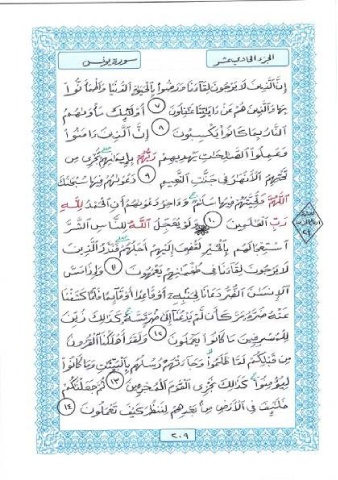 الجزء الحادي عشر
سورة يونس
إِنَّ الَّذِينَ لَا يَرْجُونَ لِقَاءَنَا وَرَضُوا بِالْحَيَوٰةِ الدُّنْيَا وَاطْمَأَنُّوا
بِهَا وَالَّذِينَ هُمْ عَنْ ءَايَٰتِنَا غَٰفِلُونَ ٧ أُولَٰئِكَ مَأْوَىٰهُمُ
النَّارُ بِمَا كَانُوا يَكْسِبُونَ ٨ إِنَّ الَّذِينَ ءَامَنُوا
وَعَمِلُوا الصَّٰلِحَٰتِ يَهْدِيهِمْ رَبُّهُم بِإِيمَٰنِهِمْ تَجْرِي مِن
تَحْتِهِمُ الْأَنْهَٰرُ فِي جَنَّٰتِ النَّعِيمِ ٩ دَعْوَىٰهُمْ فِيهَا سُبْحَٰنَكَ
اللَّهُمَّ وَتَحِيَّتُهُمْ فِيهَا سَلَٰمٌ وَءَاخِرُ دَعْوَىٰهُمْ أَنِ الْحَمْدُ لِلَّهِ
رَبِّ الْعَٰلَمِينَ ١٠ وَلَوْ يُعَجِّلُ اللَّهُ لِلنَّاسِ الشَّرَّ
اسْتِعْجَالَهُم بِالْخَيْرِ لَقُضِيَ إِلَيْهِمْ أَجَلُهُمْ فَنَذَرُ الَّذِينَ
لَا يَرْجُونَ لِقَاءَنَا فِي طُغْيَٰنِهِمْ يَعْمَهُونَ ١١ وَإِذَا مَسَّ
الْإِنسَٰنَ الضُّرُّ دَعَانَا لِجَنبِهِ أَوْ قَاعِدًا أَوْ قَائِمًا فَلَمَّا كَشَفْنَا
عَنْهُ ضُرَّهُ مَرَّ كَأَن لَّمْ يَدْعُنَا إِلَىٰ ضُرٍّ مَّسَّهُ كَذَٰلِكَ زُيِّنَ
لِلْمُسْرِفِينَ مَا كَانُوا يَعْمَلُونَ ١٢ وَلَقَدْ أَهْلَكْنَا الْقُرُونَ
مِن قَبْلِكُمْ لَمَّا ظَلَمُوا وَجَاءَتْهُمْ رُسُلُهُم بِالْبَيِّنَٰتِ وَمَا كَانُوا
لِيُؤْمِنُوا كَذَٰلِكَ نَجْزِي الْقَوْمَ الْمُجْرِمِينَ ١٣ ثُمَّ جَعَلْنَٰكُمْ
خَلَٰئِفَ فِي الْأَرْضِ مِن بَعْدِهِمْ لِنَنظُرَ كَيْفَ تَعْمَلُونَ ١٤
٢٠٩